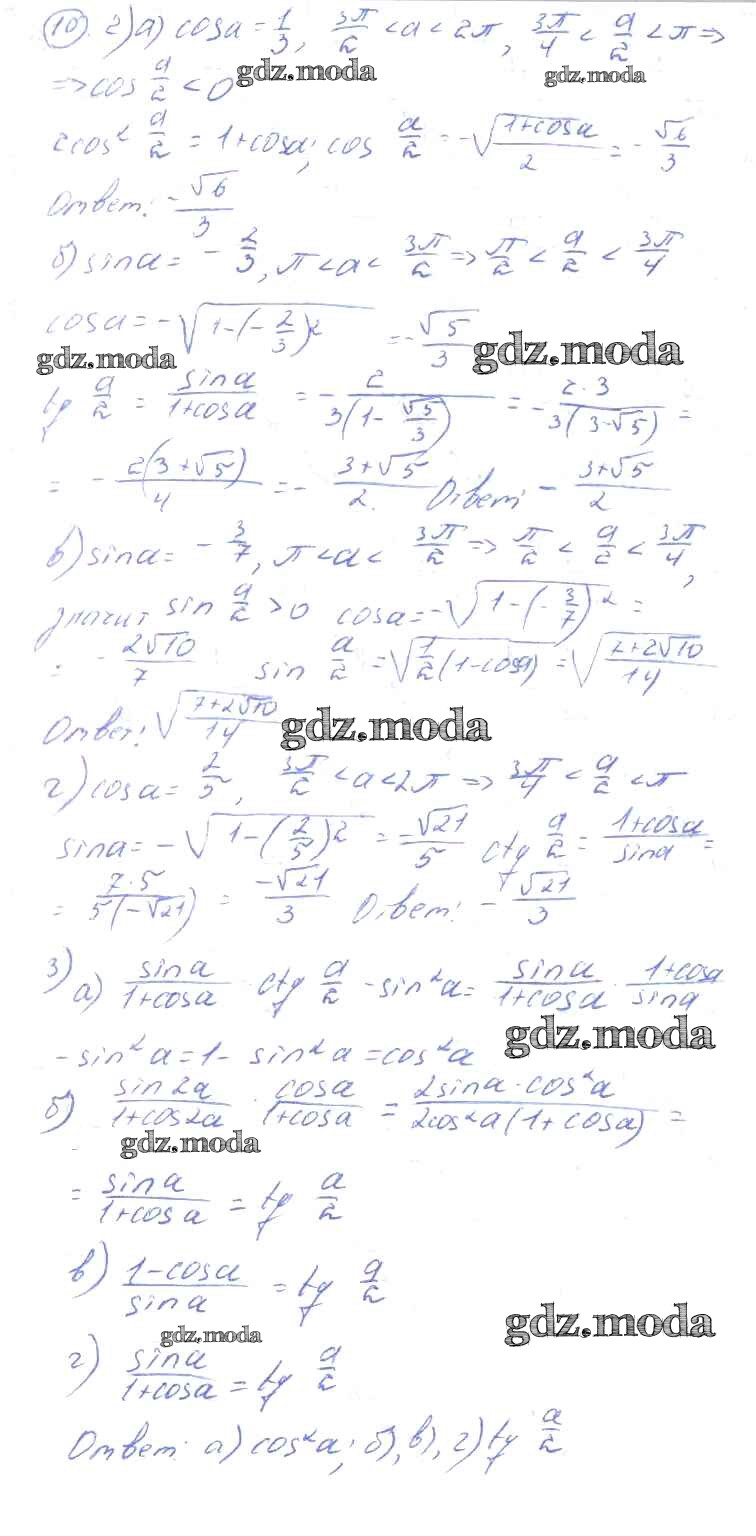 10. 2) а) cosa = 1/3, 3π/2 < a < 2π, 3π/4 < a/2 < π ⇒
gdz.moda gdz.moda
⇒ cos a/2 < 0
2cos² a/2 = 1+cosa; cos a/2 = -√((1+cosa)/2) = -√6/3
Ответ: -√6/3
б) sina = -2/3, π < a < 3π/2 ⇒ π/2 < a/2 < 3π/4
cosa = -√(1-(-2/3)²) = -√5/3
gdz.moda gdz.moda
tg a/2 = sina/(1+cosa) = -2/(3(1-√5/3)) = -(2·3)/(3(3-√5)) =
= -2(3+√5)/4 = -(3+√5)/2. Ответ: -(3+√5)/2
в) sina = -3/7, π < a < 3π/2 ⇒ π/2 < a/2 < 3π/4,
значит sin a/2 > 0 cosa = -√(1-(-3/7)²) =
= -2√10/7 sin a/2 = √(1/2(1-cosa)) = √((7+2√10)/14)
Ответ: √((7+2√10)/14)
gdz.moda
г) cosa = 2/5, 3π/2 < a < 2π ⇒ 3π/4 < a/2 < π
sina = -√(1-(2/5)²) = -√21/5 ctg a/2 = (1+cosa)/sina =
= (7·5)/(5(-√21)) = -√21/3 Ответ: -√21/3
3) а) sina/(1+cosa) · ctg a/2 - sin²a = sina/(1+cosa) · (1+cosa)/sina
gdz.moda
- sin²a = 1 - sin²a = cos²a
б) sin2a/(1+cos2a) · cosa/(1+cosa) = (2sina·cos²a)/(2cos²a(1+cosa)) =
gdz.moda
= sina/(1+cosa) = tg a/2
в) (1-cosa)/sina = tg a/2
gdz.moda gdz.moda
г) sina/(1+cosa) = tg a/2
Ответ: а) cos²a; б), в), г) tg a/2